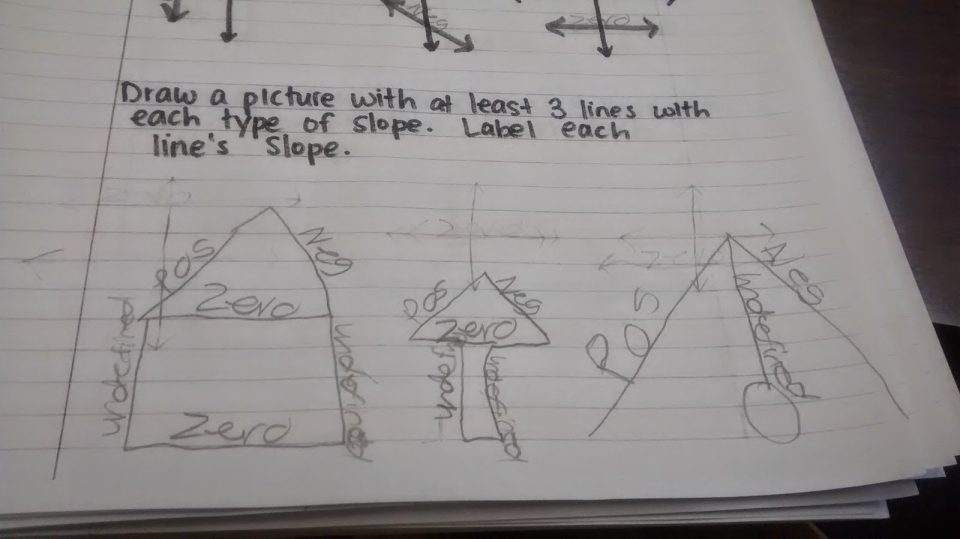 Neg
zero
Draw a picture with at least 3 lines with
each type of slope. Label each
line's slope.
POS
Neg
Zero
undefined
undefined
Zero
POS
Neg
Zero
undefined
POS
Neg
undefined